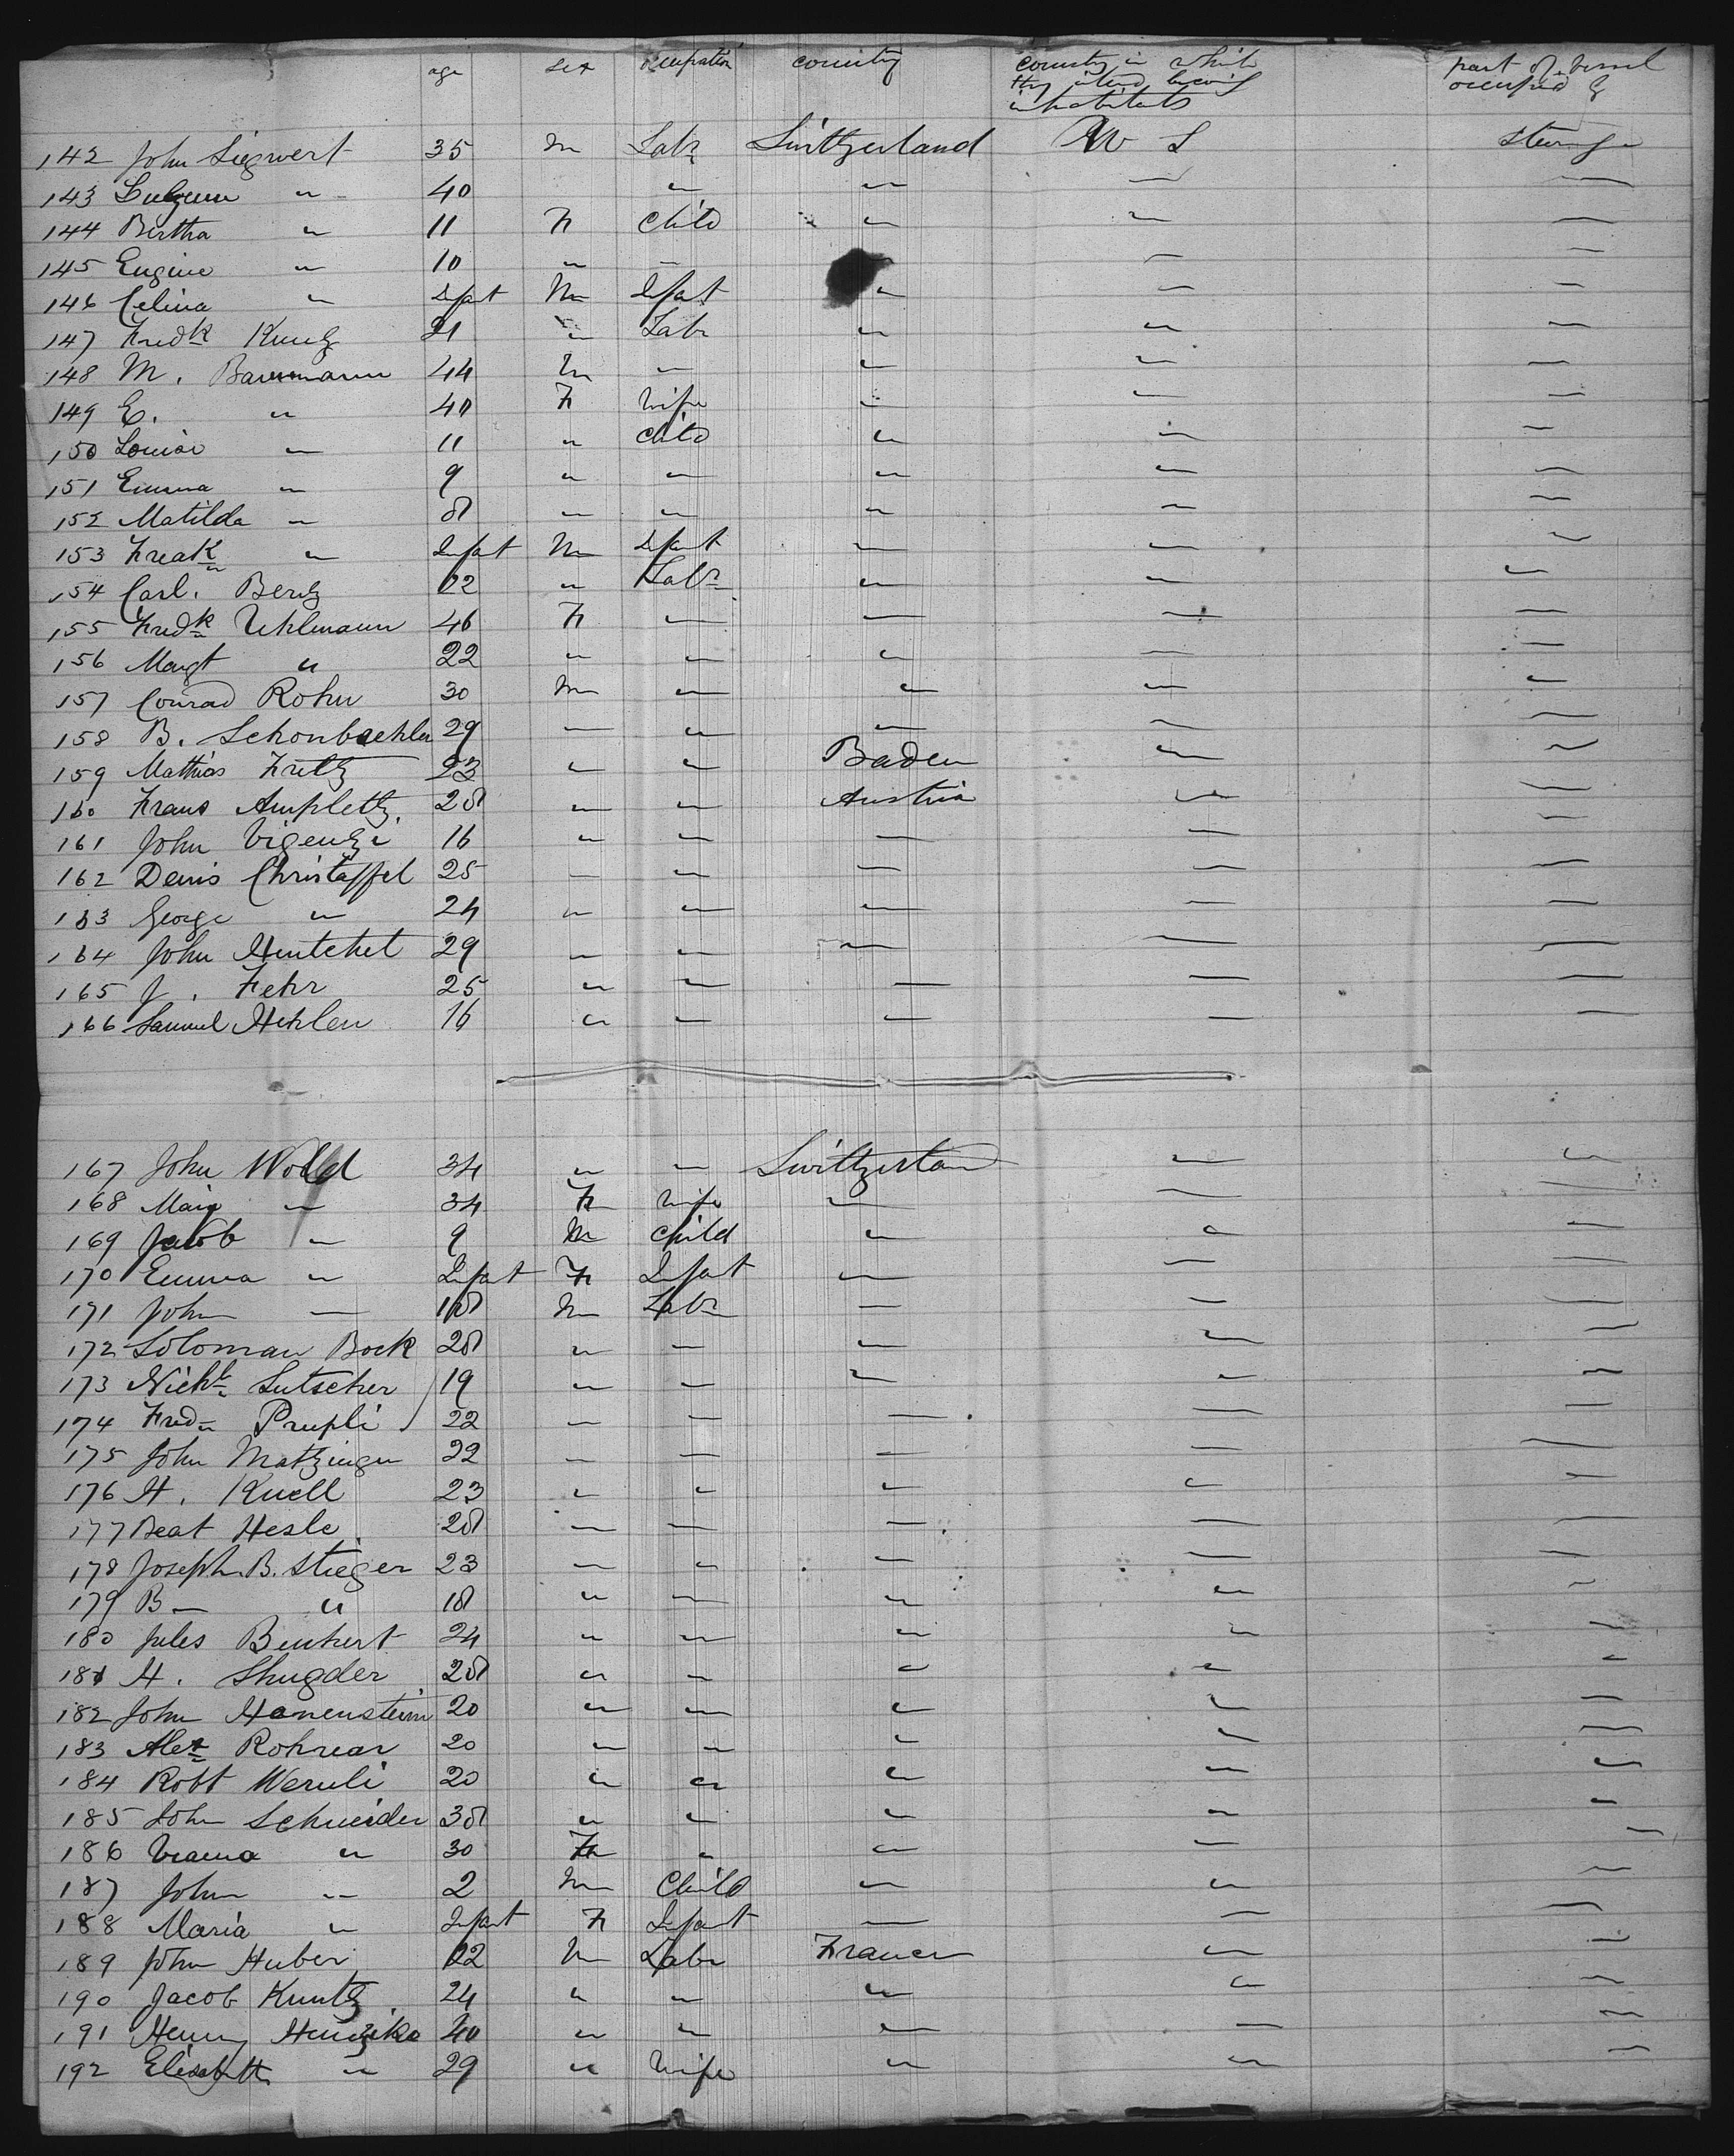 age sex occupation country country in which they intend becoming inhabitants part of vessel occupied by
142 John Siegwert 35 m Labr Switzerland U S Steerage
143 " 40 " " " "
144 Bertha " 11 F Child " " "
145 Eugine " 10 " " " " "
146 Celina " Infant M Infant " " "
147 Fredk Kuntz 21 " Labr " " "
148 M. Baumann 44 M " " " "
149 E. " 40 F Wife " " "
150 Louise " 11 " Child " " "
151 Emma " 9 " " " " "
152 Matilda " 8 " " " " "
153 Fredk " Infant M Infant " " "
154 Carl. Bentz 22 " Labr " " "
155 Fredk Uhlmann 46 F " " " "
156 Margt " 22 " " " " "
157 Conrad Rohn 30 M " " " "
158 B. Schonbaehler 29 " " " " "
159 Mathias Fritz 23 " " Baden " "
160 Frans Ampletz. 28 " " Austria " "
161 John Vigentzi 16 " " " " "
162 Denis Christaffel 25 " " " " "
163 George " 24 " " " " "
164 John Hentchel 29 " " " " "
165 J. Fehr 25 " " " " "
166 Samuel Hehlen 16 " " " " "
167 John Wold 34 " " Switzerland " "
168 Mary " 34 F Wife " " "
169 Jacob " 9 M Child " " "
170 Emma " Infant F Infant " " "
171 John " 18 M Labr " " "
172 Soloman Bock 28 " " " " "
173 Nichl Lutscher 19 " " " " "
174 Fred Prupli 22 " " " " "
175 John Matzinger 22 " " " " "
176 H. Knell 23 " " " " "
177 Beat Hesle. 28 " " " " "
178 Joseph. B. Stieger 23 " " " " "
179 B " 18 " " " " "
180 Jules Benhert 24 " " " " "
181 H. Shugder 28 " " " " "
182 John Hanenstein 20 " " " " "
183 Alex Rohrear 20 " " " " "
184 Robt Weruli 20 " " " " "
185 John Schneider 38 " " " " "
186 " 30 F " " " "
187 John " 2 M Child " " "
188 Maria " Infant F Infant " " "
189 John Huber 22 M Labr France " "
190 Jacob Kuntz 24 " " " " "
191 Henry 40 " " " " "
192 Elisabeth " 29 " Wife " " "